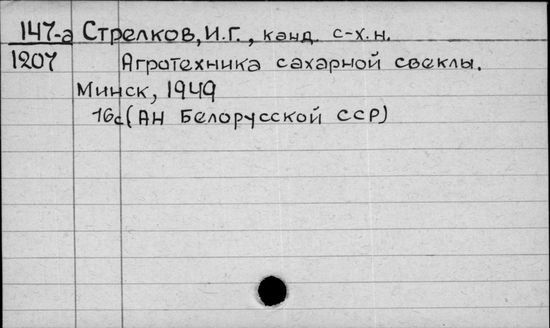 147-а Стрелков, И.Г., канд. с-х.н.
1207 Агротехника сахарной свеклы.
Минск, 1949
16с (АН Белорусской ССР)